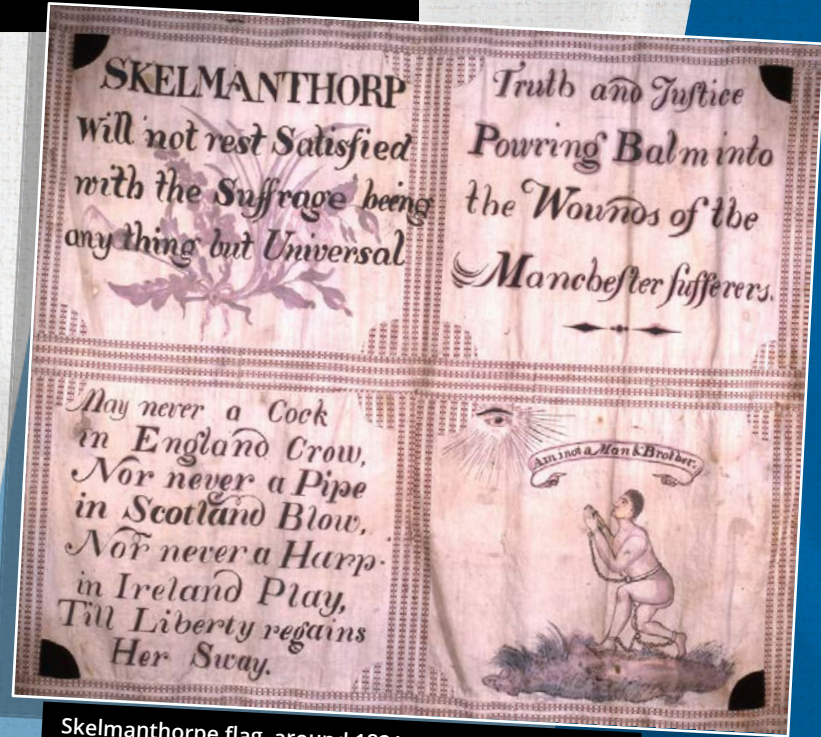 SKELMANTHORP
will not rest Satisfied
with the Suffrage being
any thing but Universal
Truth and Juſtice
Powring Balm into
the Wounds of the
Mancheſter ſufferers.
May never a Cock
in England Crow,
Nor never a Pipe
in Scotland Blow,
Nor never a Harp
in Ireland Play,
Till Liberty regains
Her Sway.
Am not a Man & Brother.
Skelmanthorpe flag, around